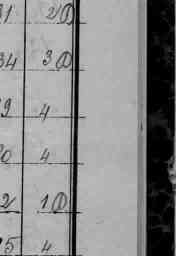 31 2 Ⓓ
34 3 Ⓓ
9 4
0 4
2 1 Ⓓ
5 4